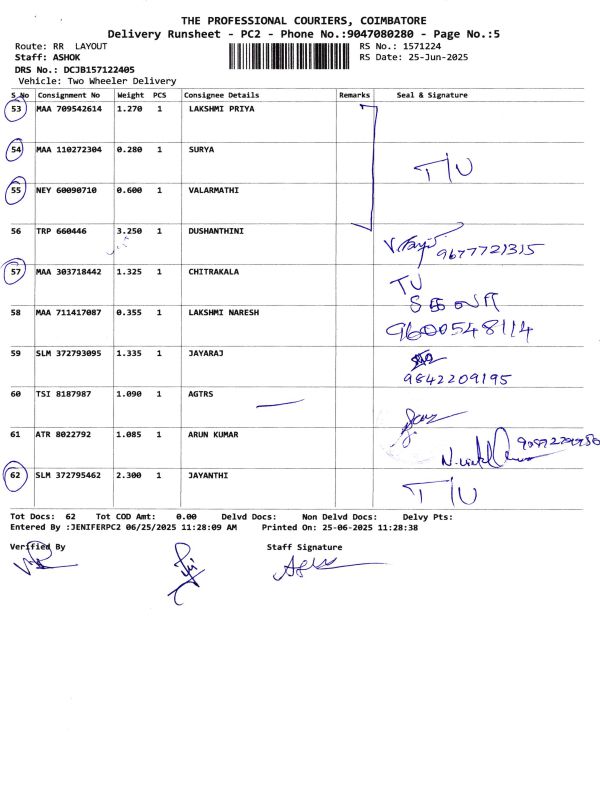 THE PROFESSIONAL COURIERS, COIMBATORE
Delivery Runsheet - PC2 - Phone No.:9047080280 - Page No.:5
Route: RR LAYOUT
RS No.: 1571224
Staff: ASHOK
RS Date: 25-Jun-2025
DRS No.: DCJB157122405
Vehicle: Two Wheeler Delivery
S.No Consignment No Weight PCS Consignee Details Remarks Seal & Signature
53 MAA 709542614 1.270 1 LAKSHMI PRIYA
54 MAA 110272304 0.280 1 SURYA T/U
55 NEY 60090710 0.600 1 VALARMATHI
56 TRP 660446 3.250 1 DUSHANTHINI 9677721315
57 MAA 303718442 1.325 1 CHITRAKALA TU
58 MAA 711417087 0.355 1 LAKSHMI NARESH 9600548114
59 SLM 372793095 1.335 1 JAYARAJ 9842209195
60 TSI 8187987 1.090 1 AGTRS
61 ATR 8022792 1.085 1 ARUN KUMAR
62 SLM 372795462 2.300 1 JAYANTHI T/U
Tot Docs: 62 Tot COD Amt: 0.00 Delvd Docs: Non Delvd Docs: Delvy Pts:
Entered By :JENIFERPC2 06/25/2025 11:28:09 AM Printed On: 25-06-2025 11:28:38
Verified By Staff Signature